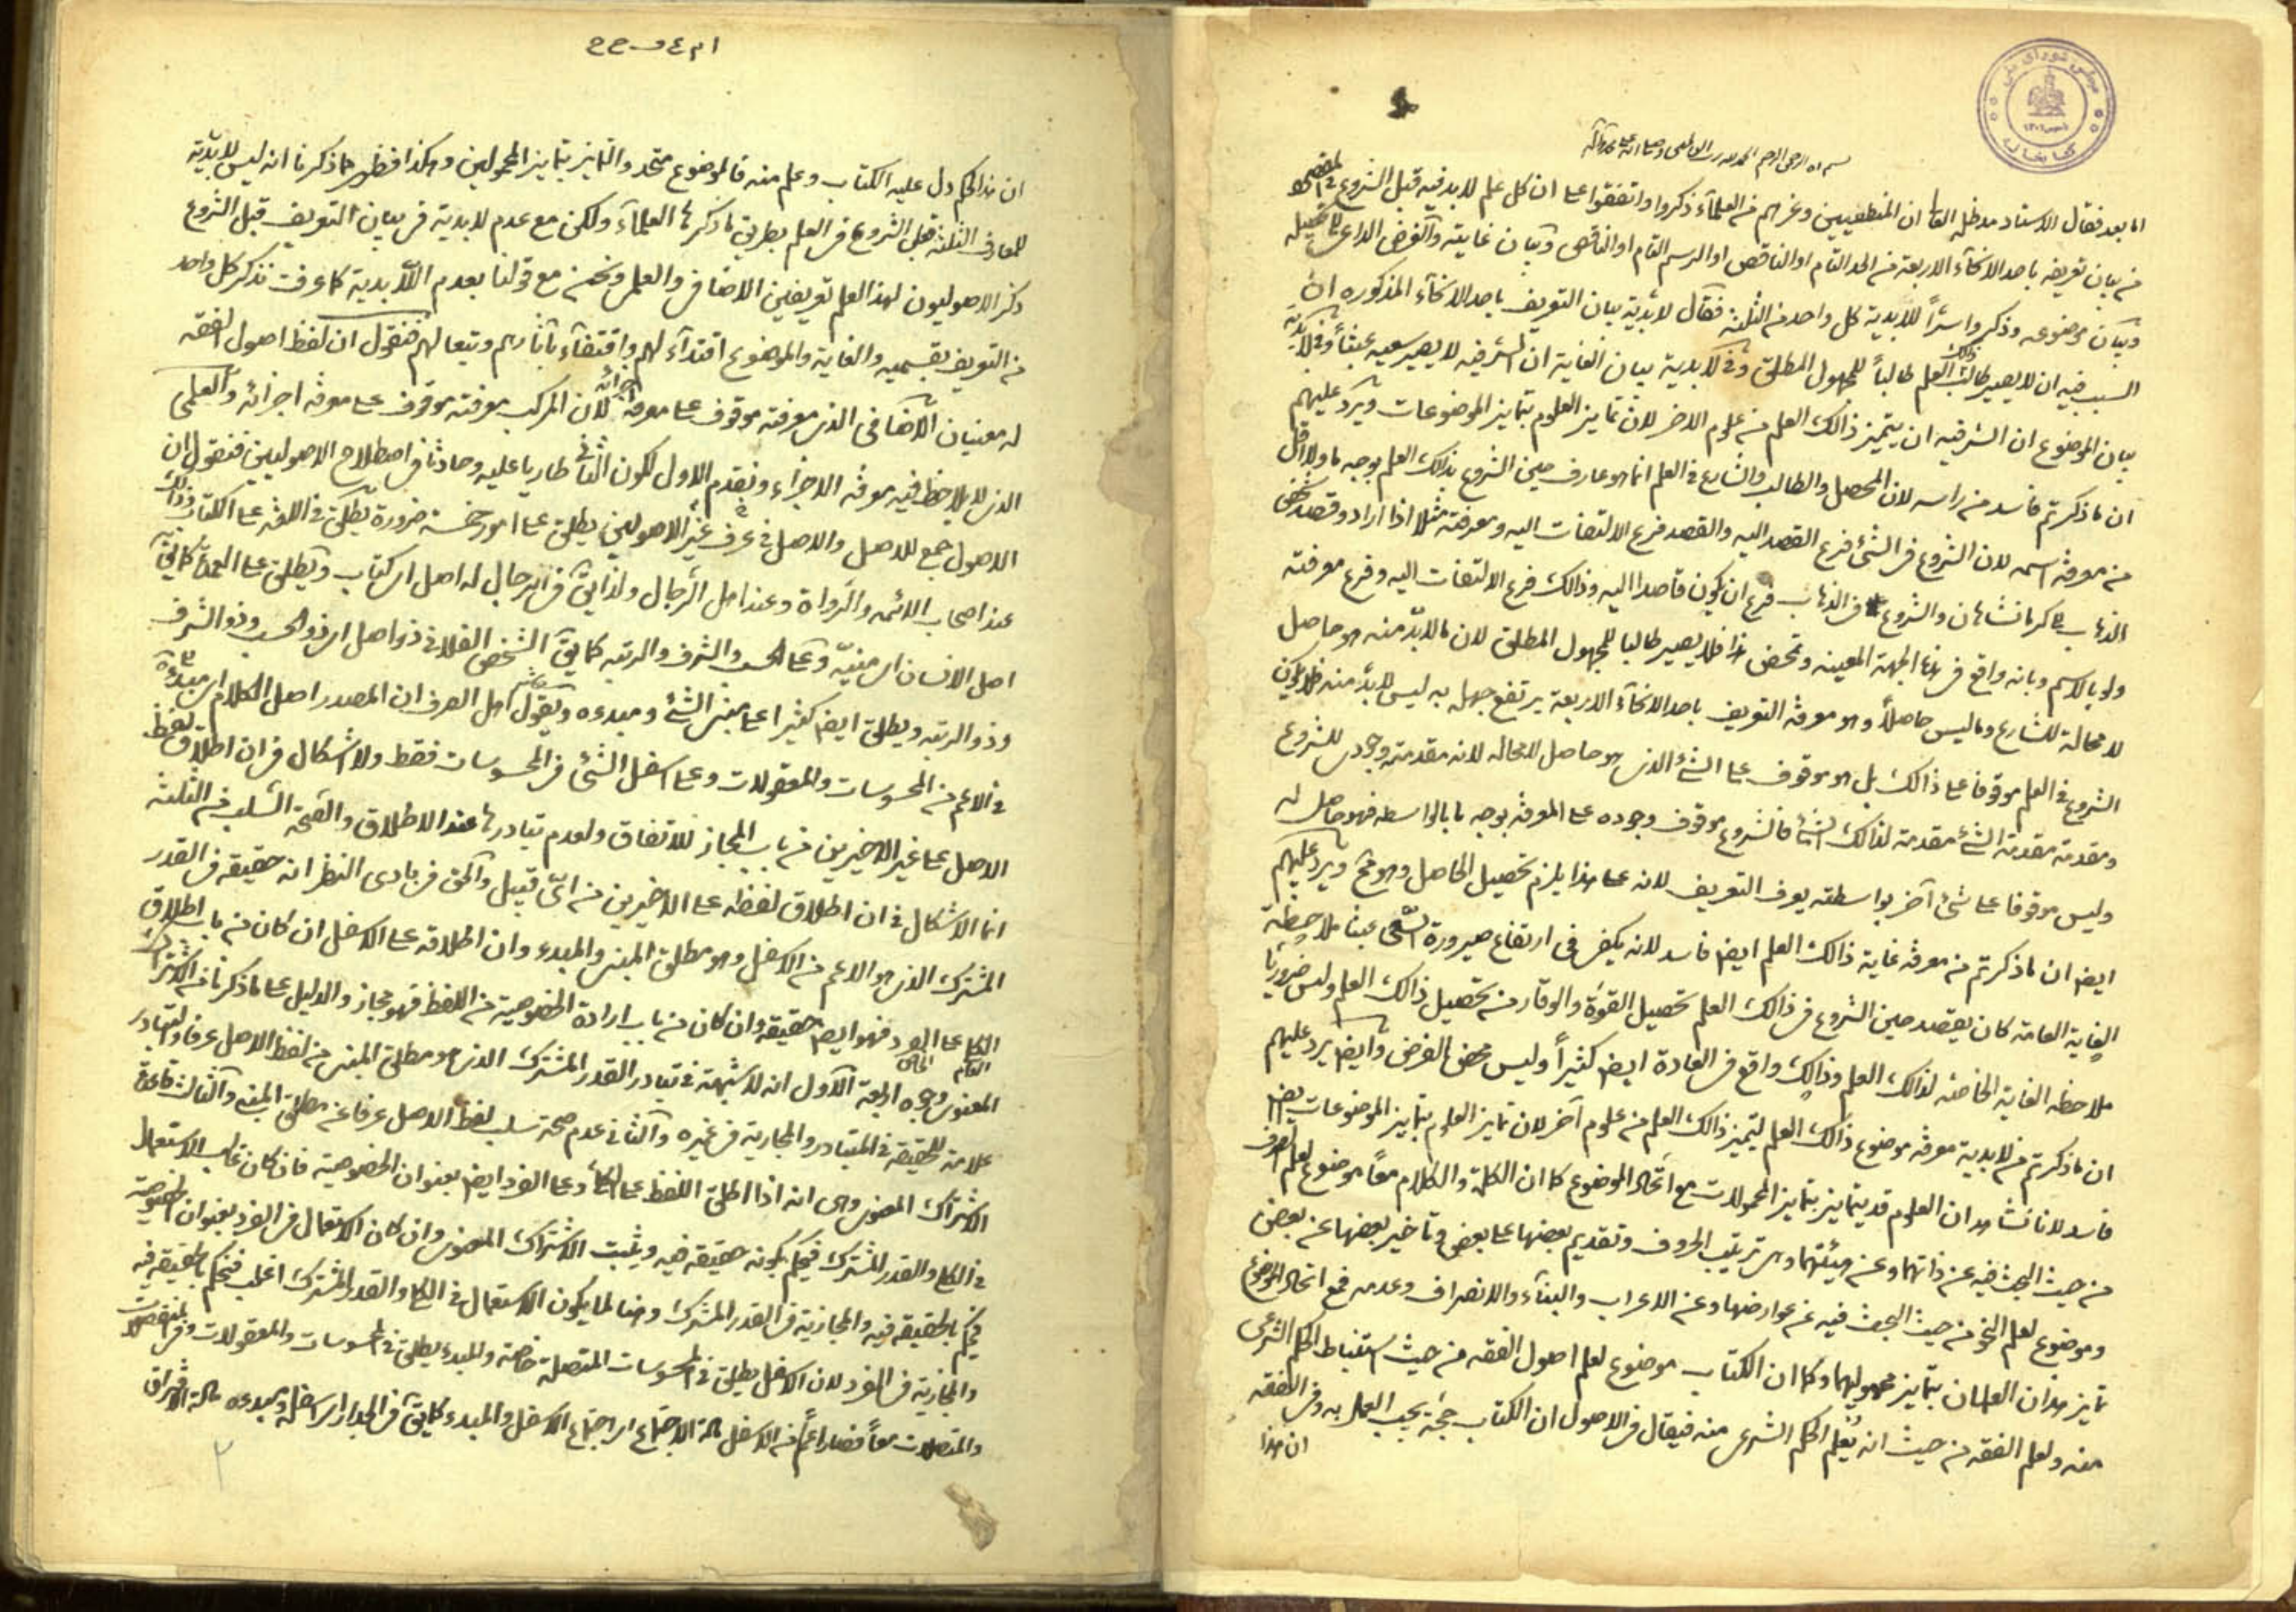 بسم الله الرحمن الرحيم الحمد لله رب العالمين وصلى الله على محمد وآله
اما بعد فقال الاستاد مد ظله العالى ان المنطقيين وغيرهم من العلمآء ذكروا واتفقوا على ان كل علم لا بد فيه قبل الشروع فى
من بيان تعريفه باحد الانحآء الاربعة من الحد التام او الناقص او الرسم التام او الناقص وبيان غايته والغرض الداعى لتحصيله
وبيان موضوعه وذكروا سرّاً للابدية كل واحد من الثلثة فقال لابدية بيان التعريف باحد الانحآء المذكوره انّ
السبب فيه ان لا يصير طالب ذلك العلم طالباً للمجهول المطلق وفى لابدية بيان الغاية ان السّر فيه لا يصير سعيه عبثاً وفى لابدية
بيان الموضوع ان السّر فيه ان يتميز ذالك العلم من علوم الاخر لان تمايز العلوم بتمايز الموضوعات ويرد عليهم
ان ما ذكرتم فاسد من راسه لان المحصل والطالب والشارع فى العلم انما هو عارف حين الشروع بذلك العلم بوجه ما ولا اقل
من معرفة اسمه لان الشروع فى الشئ فرع القصد اليه والقصد فرع الالتفات اليه ومعرفته مثلا اذا اراد وقصد شخص
الذهاب الى كرمانشاهان والشروع فى الذهاب فرع ان يكون قاصدا اليه وذالك فرع الالتفات اليه وفرع معرفته
ولو بالاسم وبانه واقع فى هذه الجهة المعينه وبمحض هذا فلا يصير طالبا للمجهول المطلق لان ما لابدّ منه هو حاصل
لا محالة للشارع وما ليس حاصلاً وهو معرفة التعريف باحد الانحآء الاربعة يرتفع جهله به ليس لابدّ منه فلا يكون
الشروع فى العلم موقوفا على ذالك بل هو موقوف على الشئ الذى هو حاصل لا محاله لانه مقدمة وجودى للشروع
ومقدمة مقدمة الشئ مقدمة لذالك الشئ فالشروع موقوف وجوده على المعرفة بوجه ما بالواسطه فهو حاصل له
وليس موقوفا على شئ آخر بواسطته يعرف التعريف لانه على هذا يلزم تحصيل الحاصل وهو مح ويرد عليهم
ايض ان ما ذكرتم من معرفة غاية ذالك العلم ايض فاسد لانه يكفى فى ارتفاع صيرورة السّعى عبثا ملاحظة
الغاية العامة كان يقصد حين الشروع فى ذالك العلم تحصيل القوّة والوقار من تحصيل ذالك العلم وليس ضروريّا
ملاحظة الغاية الخاصة لذالك العلم وذالك واقع فى العادة ايض كثيراً وليس محض الفرض وايض يرد عليهم
ان ما ذكرتم من لابدية معرفة موضوع ذالك العلم ليتميز ذالك العلم من علوم آخر لان تمايز العلوم بتمايز الموضوعات ايض
فاسد لانا نشاهد ان العلوم قد يتمايز بتمايز المحمولات مع اتحاد الموضوع كما ان الكلمة والكلام معاً موضوع لعلم الصرف
من حيث البحث فيه عن ذاتهما وعن هيئتهما وس ترتيب الحروف وتقديم بعضها على بعض وتاخير بعضها عن بعض
وموضوع لعلم النحو من حيث البحث فيه عن عوارضها وعن الاعراب والبنآء والانصراف وعدمه فمع اتحاد الموضوع
تمايز هذان العلمان بتمايز محموليهما وكما ان الكتاب موضوع لعلم اصول الفقه من حيث استنباط الحكم الشرعى
منه ولعلم الفقه من حيث انه يُعلم الحكم الشرعى منه فيقال فى الاصول ان الكتاب حجة يجب العمل به وفى الفقه
ان هذا
ان هذا الحكم دل عليه الكتاب وعلم منه فالموضوع متحد والتمايز بتمايز المحمولين وهكذا فظهر مما ذكرنا انه ليس لابدّية
للمعارف الثلثة قبل الشروع فى العلم بطريق ما ذكرها العلمآء ولكن مع عدم لابدية فى بيان التعريف قبل الشروع
ذكر الاصوليون لهذا العلم تعريفين الاضافى والعلمى ونحن مع قولنا بعدم اللّابدية كما عرفت نذكر كل واحد
من التعريف بقسميه والغاية والموضوع اقتدآء لهم واقتفآء بآثارهم وتبعا لهم فنقول ان لفظ اصول الفقه
له معنيان الاضافى الذى معرفته موقوف على معرفة اجزائه لان المركب معرفته موقوف على معرفة اجزائه والعلمى
الذى لا يلاحظ فيه معرفة الاجزاء ونقدم الاول لكون الثانى طاريا عليه وحادثا فى اصطلاح الاصوليين فنقول ان
الاصول جمع للاصل والاصل فى عرف غير الاصوليين يطلق على امور خمسة ضرورة يطلق فى اللغه على الكتاب وذالك
عند اصحاب الائمه والرواة وعند اهل الرّجال ولذا يقال فى الرجال له اصل اى كتاب ويطلق على
اصل الانسان اى منيّه وعلى الحسب والشرف والرتبه كما يق الشخص الفلانى ذو اصل اى ذو الحسب وذو الشرف
وذو الرتبه ويطلق ايض كثيرا على مبنى الشئ ومبدءه ويقول اهل الصرف ان المصدر اصل الكلام اى مبدءه
فى الاعم من المحسوسات والمعقولات وعلى اسفل الشئ فى المحسوسات فقط ولا اشكال فى ان اطلاق لفظ
الاصل على غير الاخيرين من باب المجاز للاتفاق ولعدم تبادرها عند الاطلاق والصّحة السّلب فى الثلثة
انما الاشكال فى ان اطلاق لفظه على الاخيرين من اىّ قبيل والحق فى بادى النظر انه حقيقه فى القدر
المشترك الذى هو الاعم من الاسفل وهو مطلق المبنى والمبدء وان اطلاقه على الاسفل ان كان من باب اطلاق
الكلى على الفرد فهو ايض حقيقه وان كان من باب ارادة الخصوصية من اللفظ فهو مجاز والدليل على ما ذكرنا من الاشتراك
العام الخاص
المعنوى وجوه اربعة الاول انه لا شبهة فى تبادر القدر المشترك الذى هو مطلق المبنى من لفظ الاصل عرفا والتبادر
علامة للحقيقة فى المتبادر والمجازية فى غيره والثانى عدم صحة سلب لفظ الاصل عرفا عن مطلق المبنى والثالث قاعدة
الاشتراك المعنوى وهى انه اذا اطلق اللفظ على الكلى وعلى الفرد ايض بعنوان الخصوصية فان كان غالب الاستعمال
فى الكلى والقدر المشترك فيحكم بكونه حقيقة فيه ويثبت الاشتراك المعنوى وان كان الاستعمال فى الفرد بعنوان الخصوصية
فيحكم بالحقيقه فيه والمجازية فى القدر المشترك وهنا لما يكون الاستعمال فى الكلى والقدر المشترك اغلب فنحكم بالحقيقه فيه
والمجازية فى الفرد لان الاسفل يطلق فى المحسوسات المتصلة خاصة والمبدء يطلق فى المحسوسات والمعقولات وفى المنفصلات
والمتصلات معاً فصار اعم من الاسفل مادة الاجتماع اى اجتماع الاسفل والمبدء كما يق فى الجدار اى اسفله ومبدءه مادة الافتراق
٢